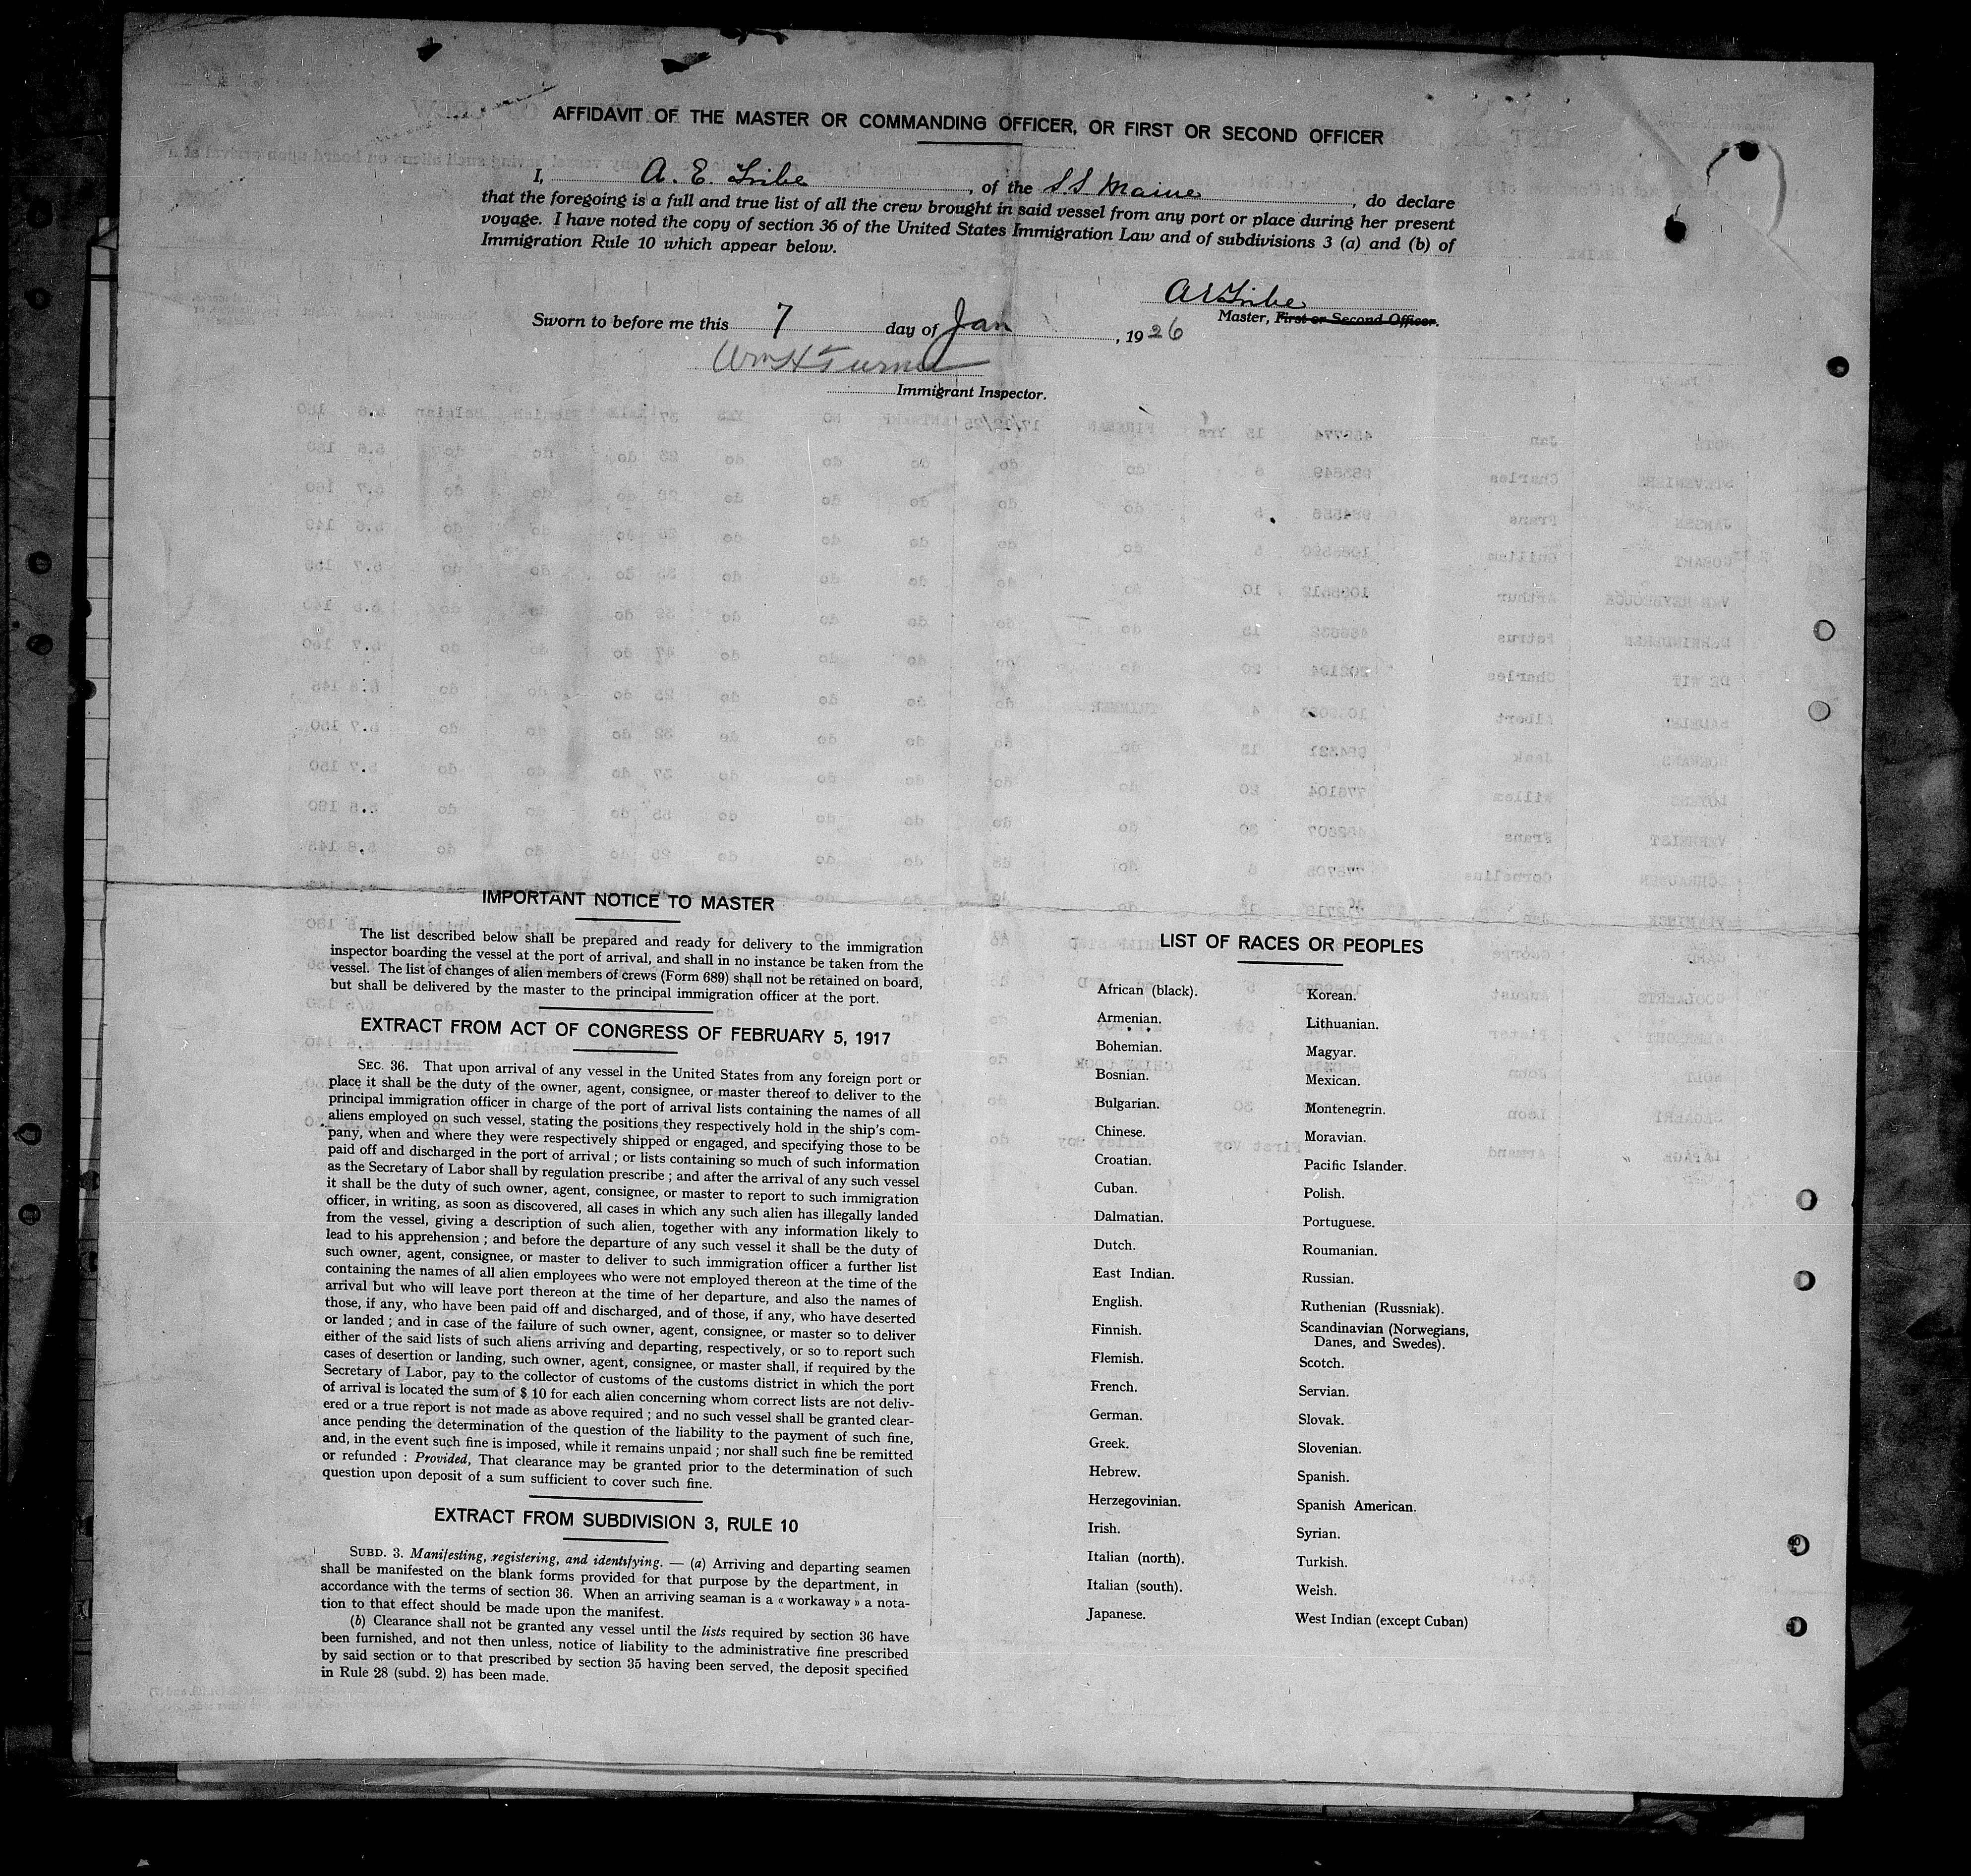 AFFIDAVIT OF THE MASTER OR COMMANDING OFFICER, OR FIRST OR SECOND OFFICER
I, A. E. Tribe, of the S.S Maine, do declare
that the foregoing is a full and true list of all the crew brought in said vessel from any port or place during her present
voyage. I have noted the copy of section 36 of the United States Immigration Law and of subdivisions 3 (a) and (b) of
Immigration Rule 10 which appear below.
A E Tribe
Master, First or Second Officer.
Sworn to before me this 7 day of Jan, 1926
Wm H Turner
Immigrant Inspector.
IMPORTANT NOTICE TO MASTER
The list described below shall be prepared and ready for delivery to the immigration
inspector boarding the vessel at the port of arrival, and shall in no instance be taken from the
vessel. The list of changes of alien members of crews (Form 689) shall not be retained on board,
but shall be delivered by the master to the principal immigration officer at the port.
EXTRACT FROM ACT OF CONGRESS OF FEBRUARY 5, 1917
SEC. 36. That upon arrival of any vessel in the United States from any foreign port or
place it shall be the duty of the owner, agent, consignee, or master thereof to deliver to the
principal immigration officer in charge of the port of arrival lists containing the names of all
aliens employed on such vessel, stating the positions they respectively hold in the ship's com-
pany, when and where they were respectively shipped or engaged, and specifying those to be
paid off and discharged in the port of arrival ; or lists containing so much of such information
as the Secretary of Labor shall by regulation prescribe ; and after the arrival of any such vessel
it shall be the duty of such owner, agent, consignee, or master to report to such immigration
officer, in writing, as soon as discovered, all cases in which any such alien has illegally landed
from the vessel, giving a description of such alien, together with any information likely to
lead to his apprehension ; and before the departure of any such vessel it shall be the duty of
such owner, agent, consignee, or master to deliver to such immigration officer a further list
containing the names of all alien employees who were not employed thereon at the time of the
arrival but who will leave port thereon at the time of her departure, and also the names of
those, if any, who have been paid off and discharged, and of those, if any, who have deserted
or landed ; and in case of the failure of such owner, agent, consignee, or master so to deliver
either of the said lists of such aliens arriving and departing, respectively, or so to report such
cases of desertion or landing, such owner, agent, consignee, or master shall, if required by the
Secretary of Labor, pay to the collector of customs of the customs district in which the port
of arrival is located the sum of $ 10 for each alien concerning whom correct lists are not deliv-
ered or a true report is not made as above required ; and no such vessel shall be granted clear-
ance pending the determination of the question of the liability to the payment of such fine,
and, in the event such fine is imposed, while it remains unpaid ; nor shall such fine be remitted
or refunded : Provided, That clearance may be granted prior to the determination of such
question upon deposit of a sum sufficient to cover such fine.
EXTRACT FROM SUBDIVISION 3, RULE 10
SUBD. 3. Manifesting, registering, and identifying. — (a) Arriving and departing seamen
shall be manifested on the blank forms provided for that purpose by the department, in
accordance with the terms of section 36. When an arriving seaman is a « workaway » a nota-
tion to that effect should be made upon the manifest.
(b) Clearance shall not be granted any vessel until the lists required by section 36 have
been furnished, and not then unless, notice of liability to the administrative fine prescribed
by said section or to that prescribed by section 35 having been served, the deposit specified
in Rule 28 (subd. 2) has been made.
LIST OF RACES OR PEOPLES
African (black).
Armenian.
Bohemian.
Bosnian.
Bulgarian.
Chinese.
Croatian.
Cuban.
Dalmatian.
Dutch.
East Indian.
English.
Finnish.
Flemish.
French.
German.
Greek.
Hebrew.
Herzegovinian.
Irish.
Italian (north).
Italian (south).
Japanese.
Korean.
Lithuanian.
Magyar.
Mexican.
Montenegrin.
Moravian.
Pacific Islander.
Polish.
Portuguese.
Roumanian.
Russian.
Ruthenian (Russniak).
Scandinavian (Norwegians,
Danes, and Swedes).
Scotch.
Servian.
Slovak.
Slovenian.
Spanish.
Spanish American.
Syrian.
Turkish.
Welsh.
West Indian (except Cuban)